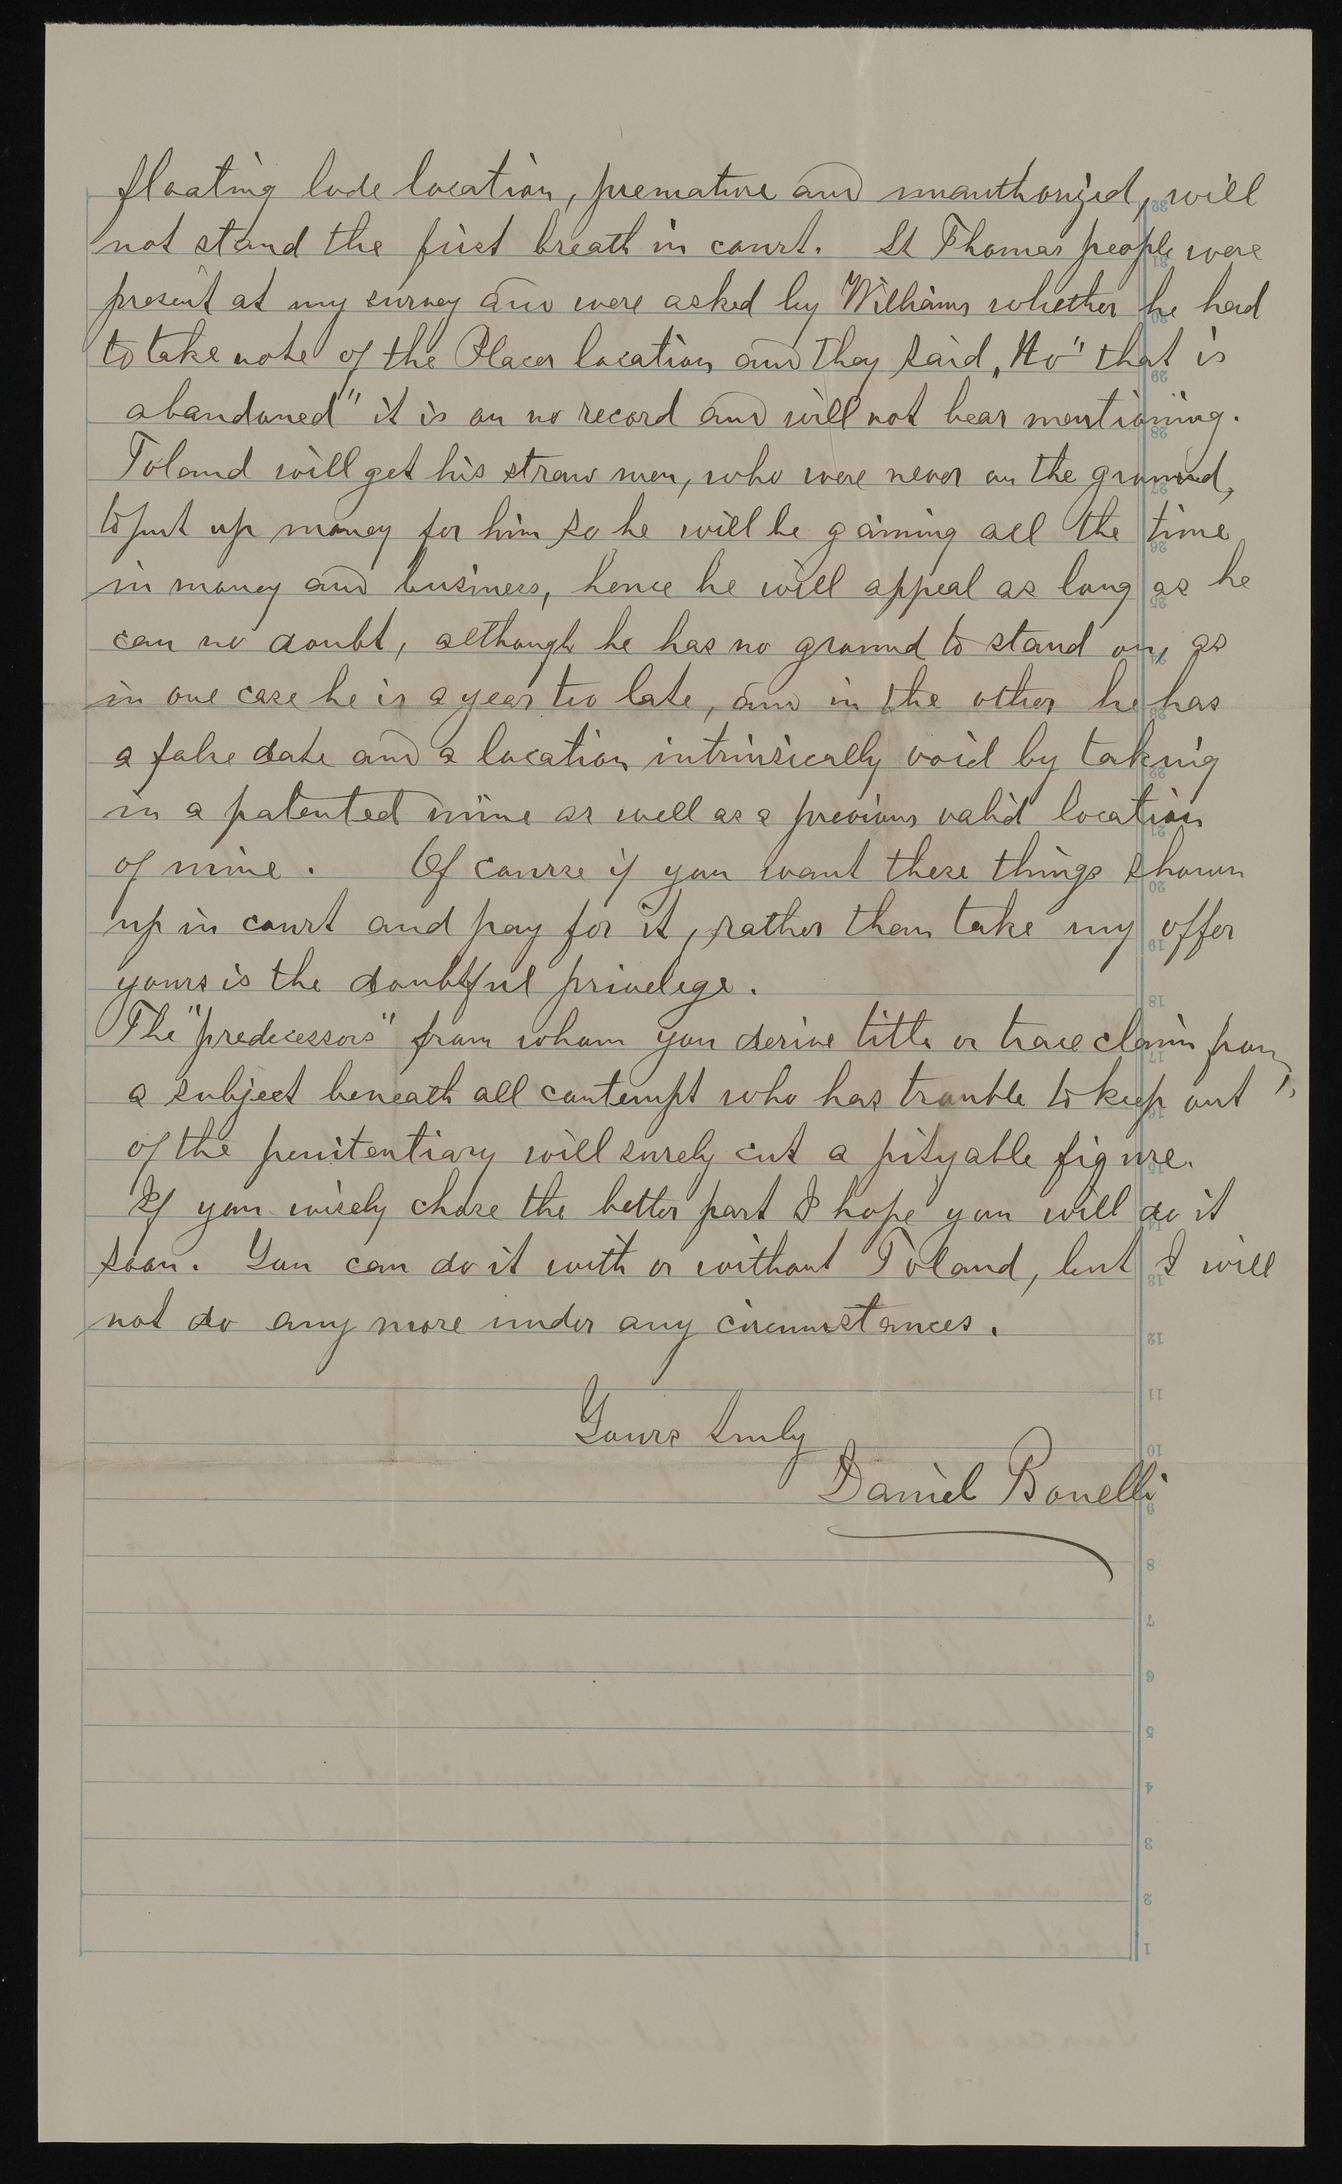 floating lode location, premature and unauthorized, will
not stand the first breath in court. St Thomas people were
present at my survey and were asked by Williams whether he had
to take note of the Placer location and they said „No" that is
abandoned" it is on no record and will not bear mentioning.
Toland will get his straw men, who were never on the ground,
to put up money for him so he will be gaining all the time
in money and business, hence he will appeal as long as he
can no doubt, although he has no ground to stand on, as
in one case he is a year too late, and in the other he has
a false date and a location intrinsically void by taking
in a patented mine as well as a previous valid location
of mine. Of course if you want these things shown
up in court and pay for it, rather than take my offer
yours is the doubtful privelege.
The "predecessors" from whom you derive title or trace claim from,
a subject beneath all contempt who has trouble to keep out
of the penitentiary will surely cut a pityable figure.
If you wisely chose the better part I hope you will do it
soon. You can do it with or without Toland, but I will
not do any more under any circumstances.
Yours truly
Daniel Bonelli
32
31
30
29
28
27
26
25
24
23
22
21
20
19
18
17
16
15
14
13
12
11
10
9
8
7
6
5
4
3
2
1